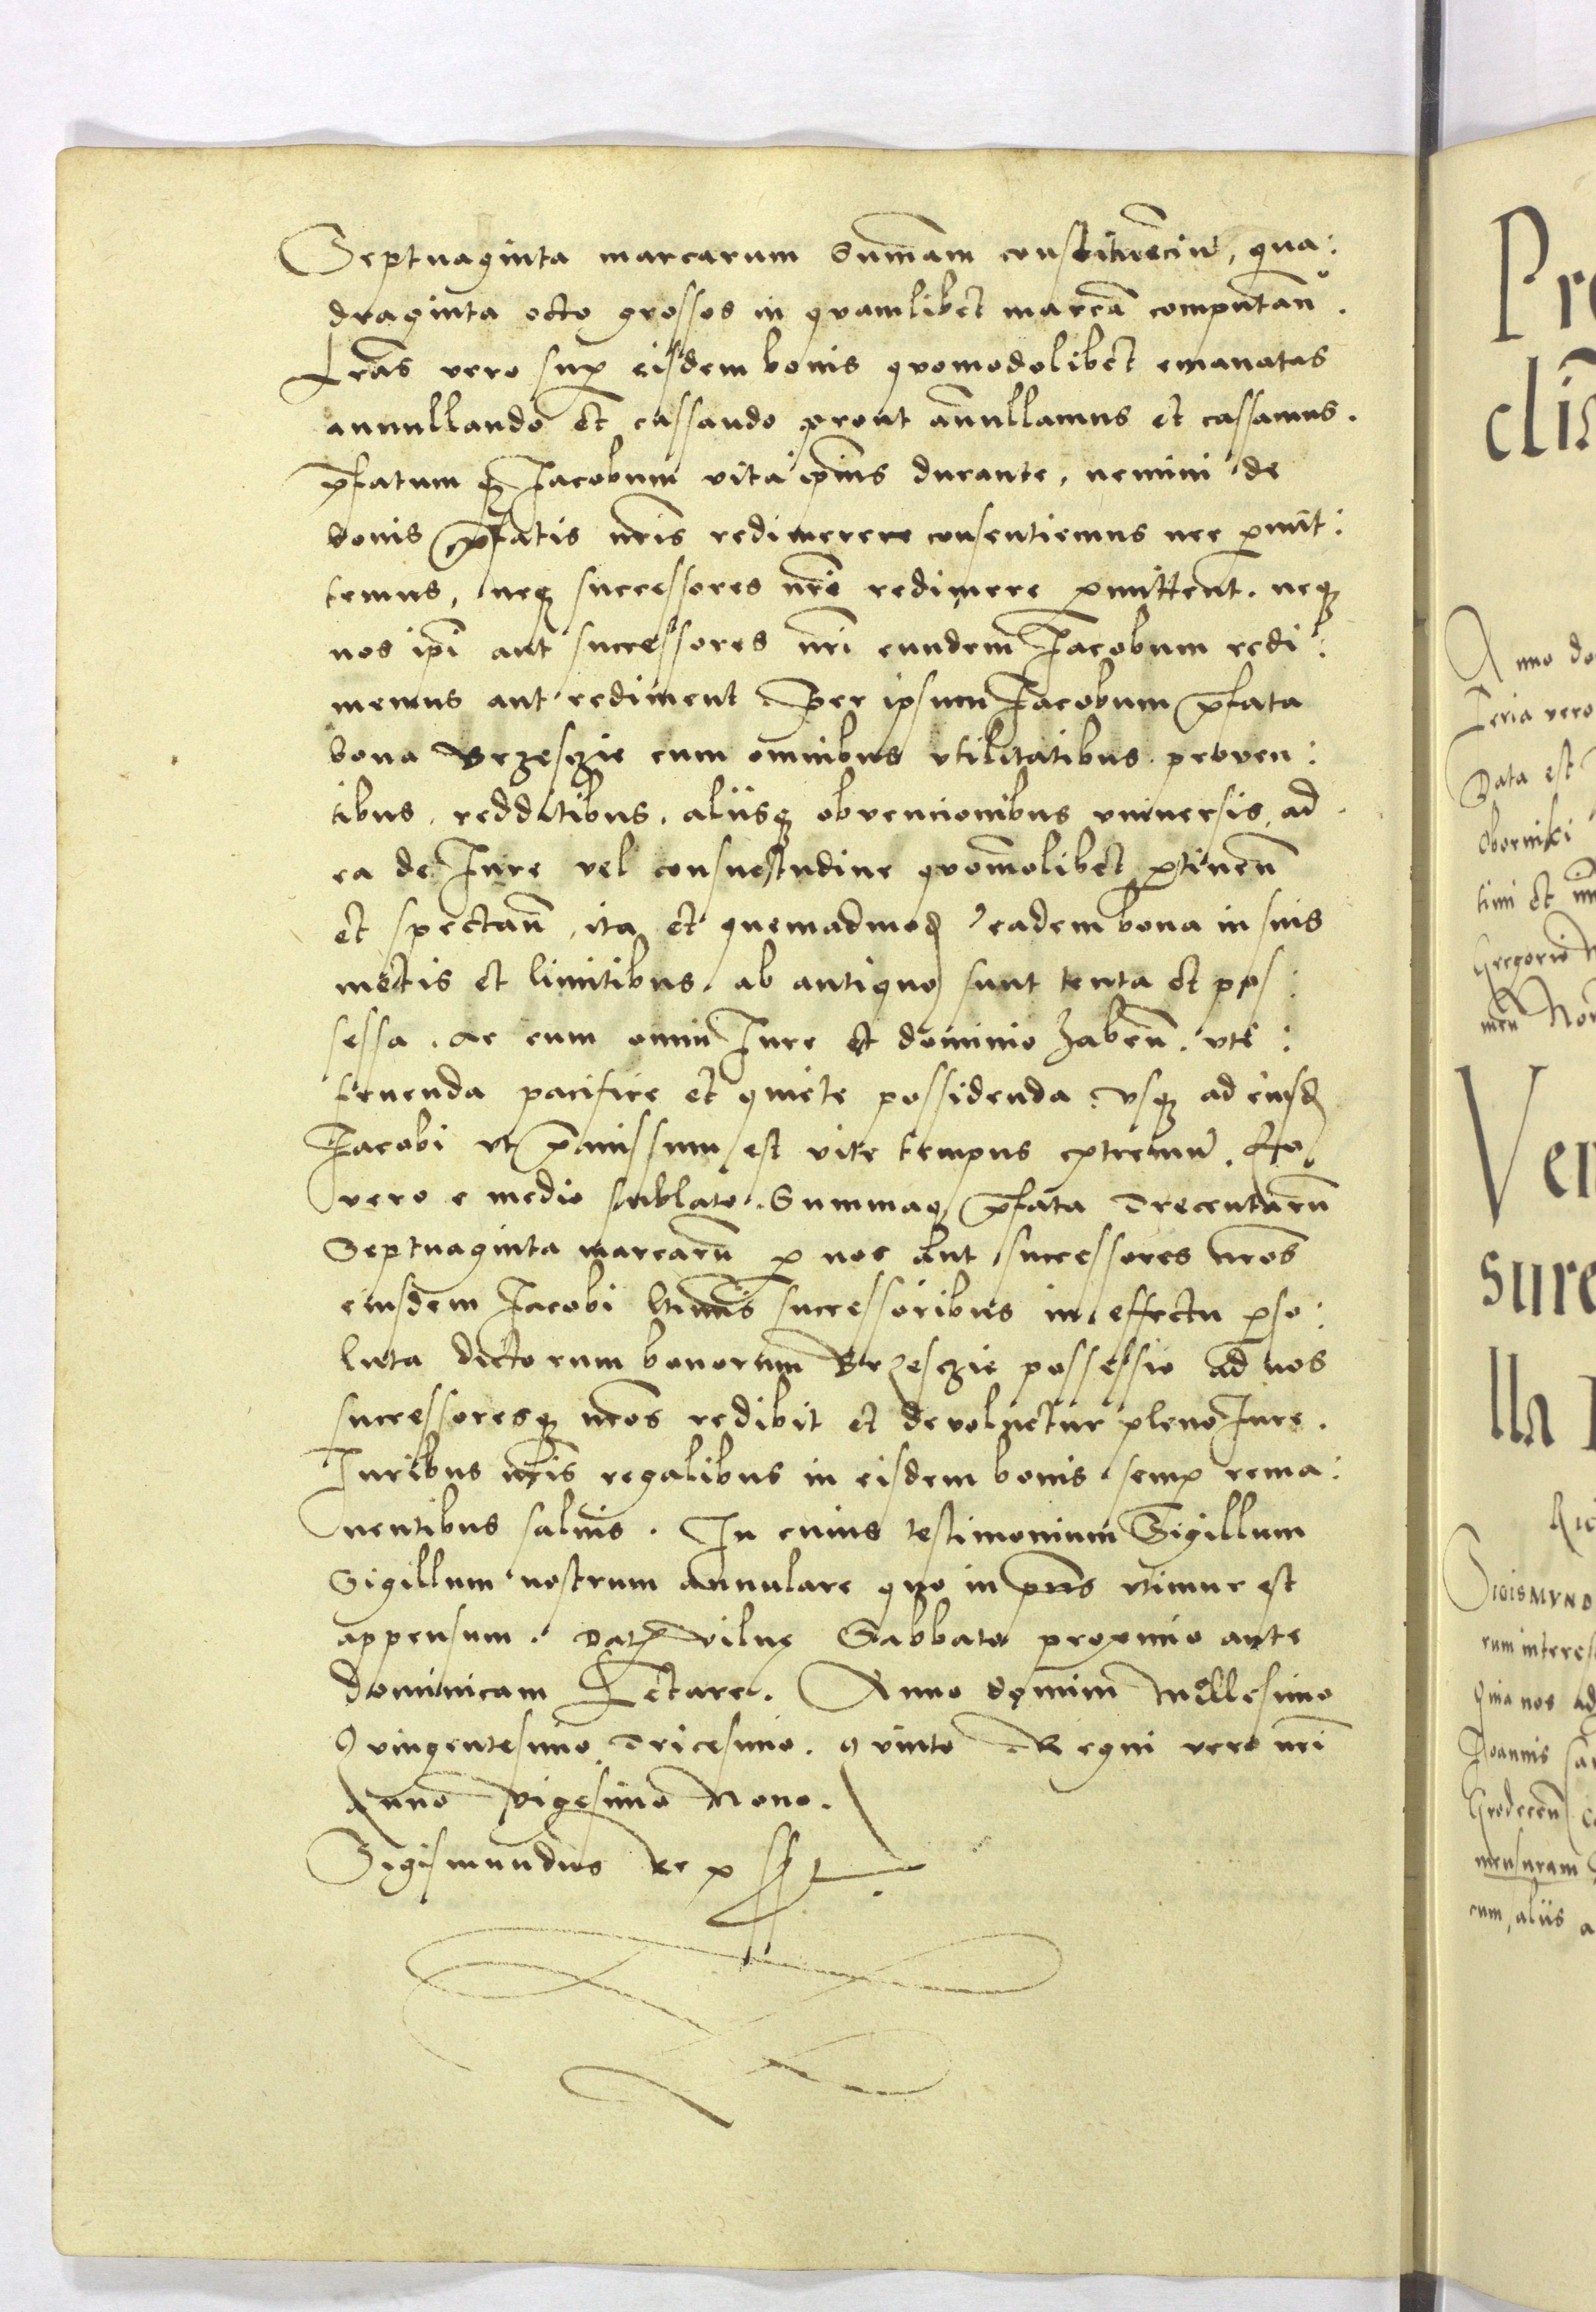 Septuaginta marcarum Sum̄am constituēciū, qua:
draginta octo grossos in quamlibet marcā computan̄.
Lrās vero sup̱ eisdem bonis quomodolibet emanatas
annullando et cassando prout an̄ullamus et cassamus.
p̄fatum qȝ Iacobum vita ip̄ius durante, nemini de
bonis p̄fatis nr̄is redimerere consentiemus nec p̱mit:
temus, neqȝ successores nr̄i redimere p̱mittent. neqȝ
nos ip̄i aut successores nr̄i eundem Iacobum redi:
memus aut rediment. Per ipsum Iacobum p̄fata
bona Brzesczie cum omnibus vtilitatibus. proven:
tibus. redditibus. aliisqȝ obvencionibus vniuersis, ad
ea de Iure vel consuestudine quom̄olibet p̱tinen̄
et spectan̄, ita et quemadmodȝ eadem bona in suis
metis et limitibus. ab antiquo sunt tenta et pos:
sessa. ac cum omni Iure et dominio haben̄. vte:
tenenda pacifice et quiete possidenda, vsqȝ ad eiusdȝ
Iacobi vt p̄missum est vite tempus extremū. Eo
vero e medio sublato. Summaqȝ p̄fata Trecentarū
Septuaginta marcarū p̱ nos aut successores nr̄os
eiusdem Iacobi ltimis successoribus in effectu p̱so:
luta dictorum bonorum Brzesczie possessio ad nos
successoresqȝ nr̄os redibit et devoluetur pleno Iure.
Iuribus nr̄is regalibus in eisdem bonis semp̱ rema:
nentibus saluis. In cuius testimonium Sigillum
Sigillum nostrum annulare quo in p̄n̄s vtimur est
appensum. Datȝ vilnę Sabbato proximo ante
dominicam Lętare. Anno domini Millesimo
Quingentesimo Tricesimo. quinto Regni vero nr̄i
Anno vigesimo Nono.
Sigismundus Rex
Pr
Anno do
Feria vero
Data est
Oborniki
timi et
Gregorio
men Nom
Ven
sure
SIGISMVND
rum interes
Quia nos ad
Ioannis
Grodecen̄
mensuram
cum, aliis a